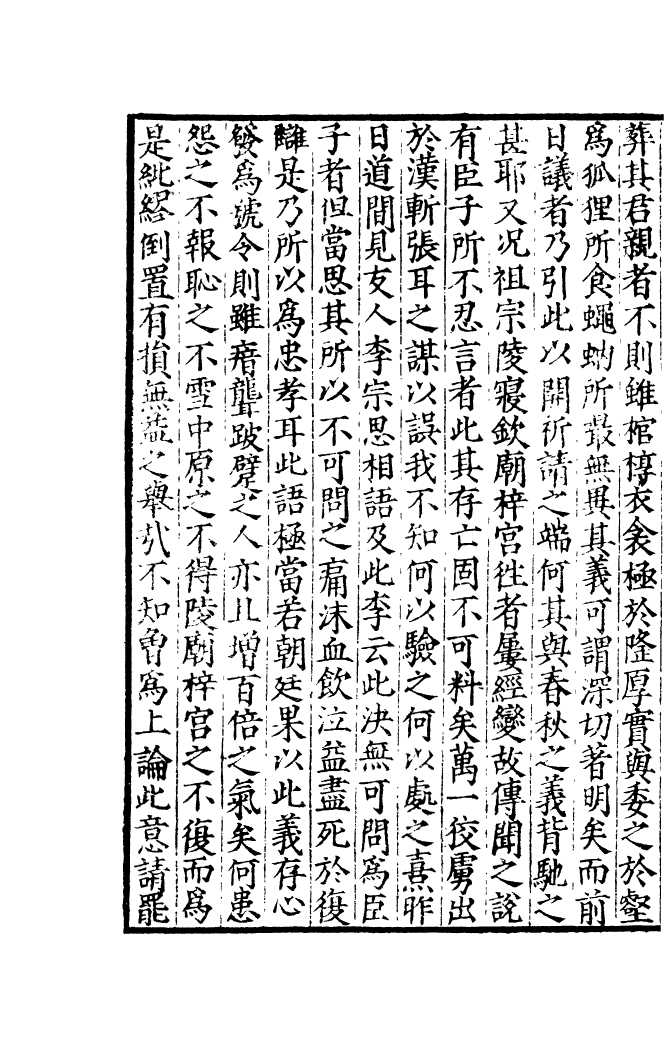 葬其君親者不則雖棺椁衣衾極於隆厚實與委之於壑
爲狐狸所食蠅蚋所嘬無異其義可謂深切著明矣而前
日議者乃引此以開祈請之端何其與春秋之義背馳之
甚耶又况祖宗陵寝欽廟梓宮徃者屢經變故傳聞之說
有臣子所不忍言者此其存亡固不可料矣萬一狡虜出
於漢斬張耳之謀以誤我不知何以驗之何以處之熹昨
日道間見友人李宗思相語及此李云此決無可問爲臣
子者但當思其所以不可問之痛沬血飲泣益盡死於復
讎是乃所以爲忠孝耳此語極當若朝廷果以此義存心
發爲號令則雖瘖聾跛躄之人亦且增百倍之氣矣何患
怨之不報恥之不雪中原之不得陵廟梓宮之不復而爲
是紕繆倒置有損無益之舉㢤不知曾爲上論此意請罷